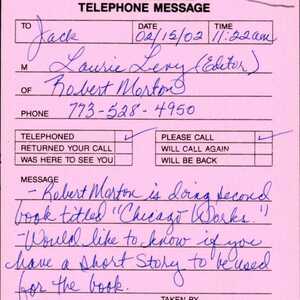 TELEPHONE MESSAGE
TO Jack DATE 02/15/02 TIME 11:22am
M Laurie Levy (Editor)
OF Robert Morton
PHONE 773-528-4950
TELEPHONED ✓ PLEASE CALL ✓
RETURNED YOUR CALL WILL CALL AGAIN
WAS HERE TO SEE YOU WILL BE BACK
MESSAGE
- Robert Morton is doing second
book titled "Chicago Works."
- Would like to know if you
have a short Story to be used
for the book.
TAKEN BY